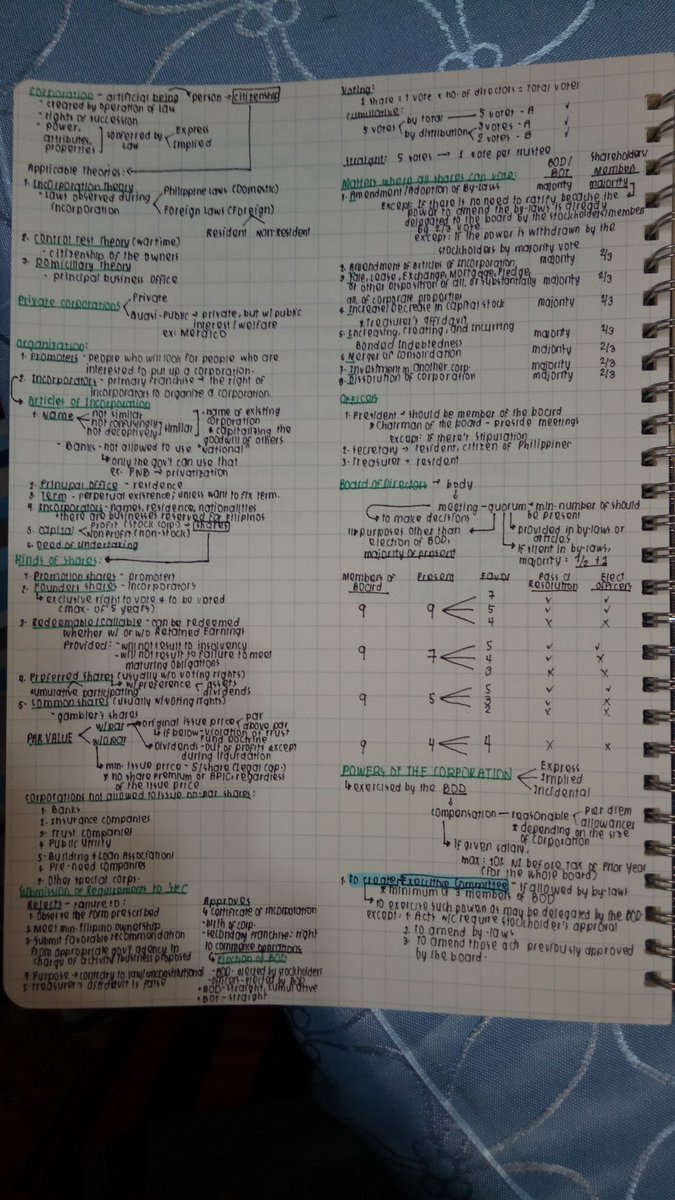 Corporation - artificial being → person → citizenship
- created by operation of law
- rights of succession
- power, attributes, properties ] conferred by law < Express
Implied
Applicable Theories:
1. Incorporation Theory
- Laws observed during incorporation < Philippine Laws (Domestic)
Foreign Laws (Foreign)
Resident Non-Resident
2. Control Test Theory (wartime)
- citizenship of the owners
3. Domiciliary Theory
- principal business office
Private Corporations < Private
Quasi-Public → private, but w/ public interest/welfare
ex: Meralco
Organization:
1. Promoters - people who will look for people who are
interested to put up a corporation.
2. Incorporators - primary franchise → the right of
incorporators to organize a corporation.
Articles of Incorporation
1. Name < not similar
not confusingly
not deceptively ] similar
- name of existing corporation
* capitalizing the goodwill of others
- Banks - not allowed to use "National"
↳ only the gov't can use that
ex. PNB → privatization
2. Principal office - residence
3. Term - perpetual existence; unless want to fix term.
4. Incorporators - names, residence, nationalities
* there are businesses reserved for Filipinos
5. Capital < Profit (stock corp.) → shares
Nonprofit (non-stock)
6. Deed of undertaking
Kinds of shares:
1. Promotion shares - promoters
2. Founders shares - Incorporators
↳ exclusive right to vote & to be voted
(max. of 5 years)
3. Redeemable/callable - can be redeemed
whether w/ or w/o Retained Earnings
Provided: - will not result to insolvency
- will not result to failure to meet
maturing obligations
4. Preferred shares (usually w/o voting rights)
w/ preference < assets
dividends
cumulative participating
5. Common shares (usually w/ voting rights)
- gambler's shares
PAR VALUE < w/ par
w/o par
original issue price < par
above par
* if below - violation of Trust Fund Doctrine
Dividends - out of profits except
during liquidation
↳ min. issue price - 5/share (Legal Cap.)
* no share premium or APIC, regardless
of the issue price
Corporations not allowed to issue no-par shares:
1. Banks
2. Insurance companies
3. Trust Companies
4. Public Utility
5. Building & Loan Associations
6. Pre-need companies
7. Other special corp.
Submission of Requirements to SEC
Rejects - Failure to:
1. Observe the form prescribed
2. Meet min. Filipino ownership
3. Submit favorable recommendation
from appropriate gov't agency in
charge of activity/business proposed
4. Purpose → contrary to law/unconstitutional
5. Treasurer's affidavit is false
Approves
↳ Certificate of Incorporation
- birth of corp.
- secondary franchise: right
to commence operations
↳ Election of BOD
- BOD - elected by stockholders
- officers - elected by BOD
* BOD - straight, cumulative
* BOT - straight
Voting:
1 share = 1 vote × no. of directors = Total votes
Cumulative:
5 votes < by total — 5 votes - A ✓
by distribution < 3 votes - A ✓
2 votes - B ✓
Straight: 5 votes → 1 vote per trustee
Matters where all shares can vote: BOD/BOT Shareholders/Member
1. Amendment/Adoption of By-laws majority majority
Except: If there is no need to ratify, because the
power to amend the by-laws is already
delegated to the board by the stockholders/members
by 2/3 vote
except: If the power is withdrawn by the
stockholders by majority vote
2. Amendment of Articles of Incorporation majority 2/3
3. Sale, Lease, Exchange, Mortgage, Pledge,
or other disposition of all, or substantially majority 2/3
all, of corporate properties
4. Increase/Decrease in capital stock majority 2/3
* treasurer's affidavit
5. Increasing, creating, and incurring majority 2/3
Bonded Indebtedness
6. Merger or Consolidation majority 2/3
7. Investment in another corp. majority 2/3
8. Dissolution of corporation majority 2/3
Officers
1. President → should be member of the board
* Chairman of the board - preside meetings
except: If there's stipulation
2. Secretary → resident, citizen of Philippines
3. Treasurer → resident
Board of Directors → body
meeting - quorum → min. number of should
be present
↳ to make decisions
↳ purposes other than
election of BOD;
majority of present
↳ provided in by-laws or
articles
↳ if silent in by-laws,
majority = 1/2 + 1
Members of Board Present Favor Pass a Resolution Elect officers
9 9 7 ✓ ✓
5 ✓ ✓
4 x x
9 7 5 ✓ ✓
4 ✓ x
3 x x
9 5 5 ✓ ✓
3 ✓ x
2 x x
9 4 4 x x
POWERS OF THE CORPORATION < Express
Implied
Incidental
↳ exercised by the BOD
compensation → reasonable < per diem
allowances
* depending on the size
of corporation
↳ if given salary,
max: 10% NI before tax of prior year
(for the whole board)
1. To create Executive Committee - if allowed by by-laws
* minimum of 3 members of BOD
↳ to exercise such power as may be delegated by the BOD
except: 1. Acts w/c require stockholder's approval
2. To amend by-laws
3. To amend those acts previously approved
by the board.